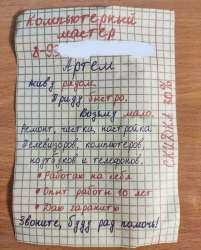 Компьютерный
мастер
8-93
Артем
Живу рядом.
Приду быстро.
Возьму мало.
Ремонт, чистка, настройка
телевизоров, компьютеров,
ноутбуков и телефонов.
* Работаю на себя
* Опыт работы 10 лет
* Даю гарантию
Звоните, буду рад помочь!
СКИДКА 30%